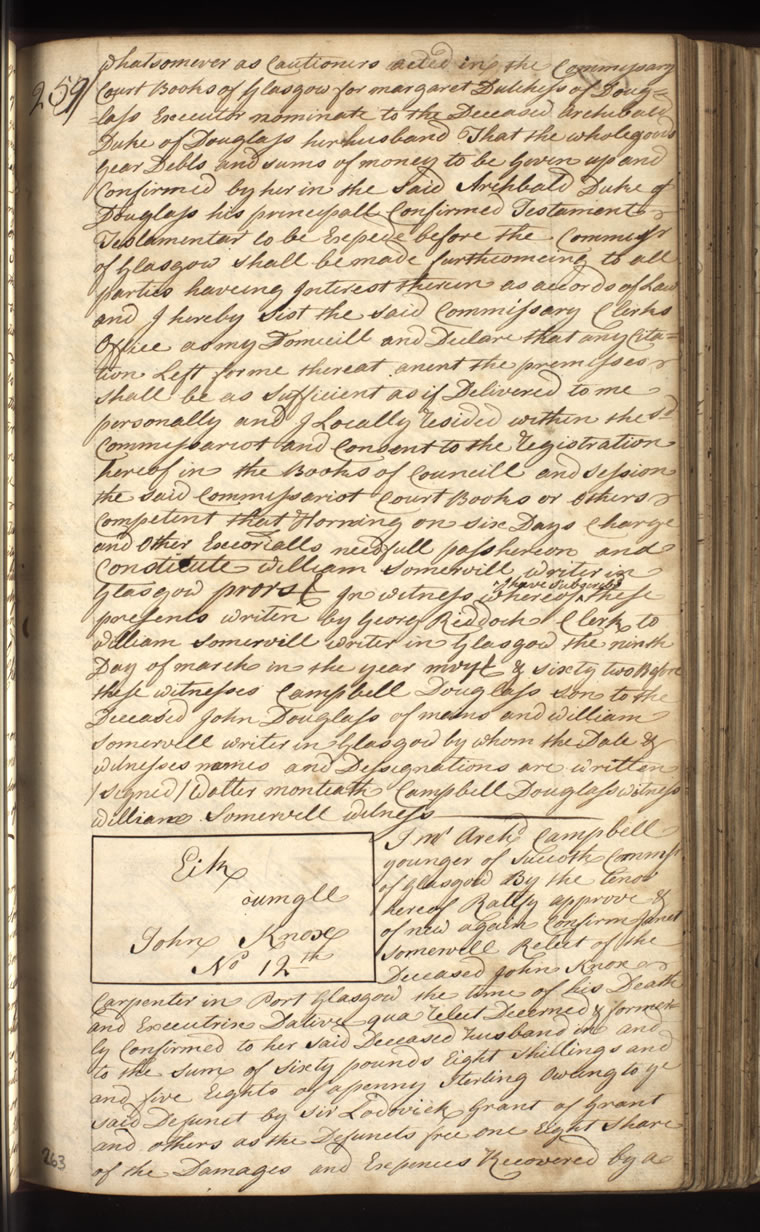 259
Whatsomever as Cautioners acted in the Commissary
Court Books of Glasgow for margaret Dutchess of Doug=
=lass Executor nominate to the Deceased Archbald
Duke of Douglass her husband That the whole goods
Gear Debts and sums of money to be Given up and
Confirmed by her in the said Archbald Duke of
Douglass his principall Confirmed Testament
Testamentar to be Expede before the Commissr
of Glasgow shall be made furthcomeing to all
parties haveing Interest therein as accords of Law
and I hereby Sist the said Commissary Clerks
Office as my Domicill and Declare that any Cita=
tion Left for me thereat anent the premisses
shall be as Sufficient as if Delivered to me
personally and I Locally resided within the sd
Commissariot and Consent to the registration
hereof in the Books of Councill and Session
the said Commissariot Court Books or others
Competent that Horning on six Days Charge
and Other Execorialls needfull pass hereon and
Constitute William Somervill writer in
Glasgow prors & In witness whereof I have subscribed these
presents writen by George Riddoch Clerk to
William Somervill writer in Glasgow the ninth
Day of march in the year mvijc & sixty two Before
these witnesses Campbell Douglass son to the
Deceased John Douglass of mains and William
Somervell writer in Glasgow by whom the Date &
witnesses names and Designations are written
/signed/ Walter monteath Campbell Douglass witness
William Somervell witness
Eik
oumgll
John Knox
No 12th
I mr Archd Campbell
younger of Succoth Commissr
of Glasgow By the tenor
hereof Ratify approve &
of new again Confirm Janet
Somervell Relict of the
Deceased John Knox
Carpenter in Port Glasgow the time of his Death
and Executrix Dative qua relict Decerned & former
ly Confirmed to her said Deceased husband in and
to the sum of Sixty pounds Eight Shillings and
and five Eights of a penny Sterling Owing to ye
said Defunct by Sir Lodovick Grant of Grant
and others as the Defuncts free one Eight Share
of the Damages and Expences Recovered by a
263